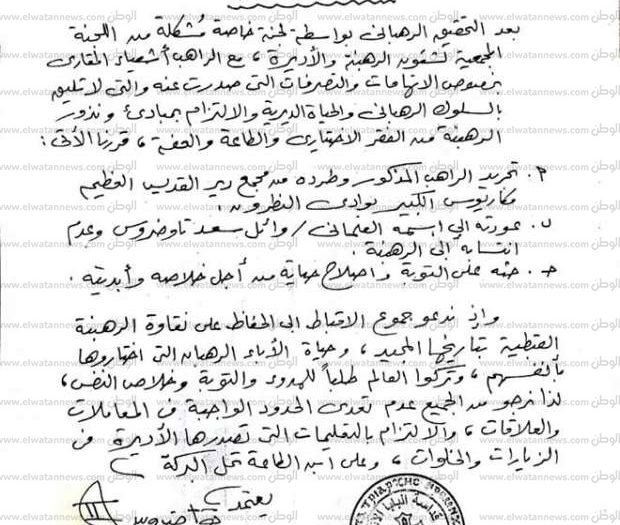 بعد التحقيق الرهبانى بواسطة لجنة خاصة مُشكلة من اللجنة
المجمعية لشئون الرهبنة والأديرة ، مع الراهب أشعياء المقارى
بخصوص الاتهامات والتصرفات التى صدرت عنه والتى لا تليق
بالسلوك الرهبانى والحياة الديرية والالتزام بمبادئ ونذور
الرهبنة من الفقر الاختيارى والطاعة والعفة ، قررنا الآتى :
تجريد الراهب المذكور وطرده من مجمع دير القديس العظيم
مكاريوس الكبير بوادى النطرون .
ب. عودته الى اسمه العلمانى / وائل سعد تاوضروس وعدم
انتسابه الى الرهبنة .
جـ. حثه على التوبة واصلاح حياته من أجل خلاصه وأبديته .
وإذ ندعو جموع الأقباط الى الحفاظ على نقاوة الرهبنة
القبطية بتاريخها المجيد ، وحياة الآباء الرهبان التى اختاروها
بأنفسهم ، وتركوا العالم طلباً للهدوء والتوبة وخلاص النفس ،
لذا نرجو من الجميع عدم تعدى الحدود الواجبة فى المعاملات
والعلاقات ، والالتزام بالتعليمات التى تصدرها الأديرة فى
الزيارات والخلوات ، وعلى ابن الطاعة تحل البركة
يعتمد
قداسة البابا
الوطن www.elwatannews.com